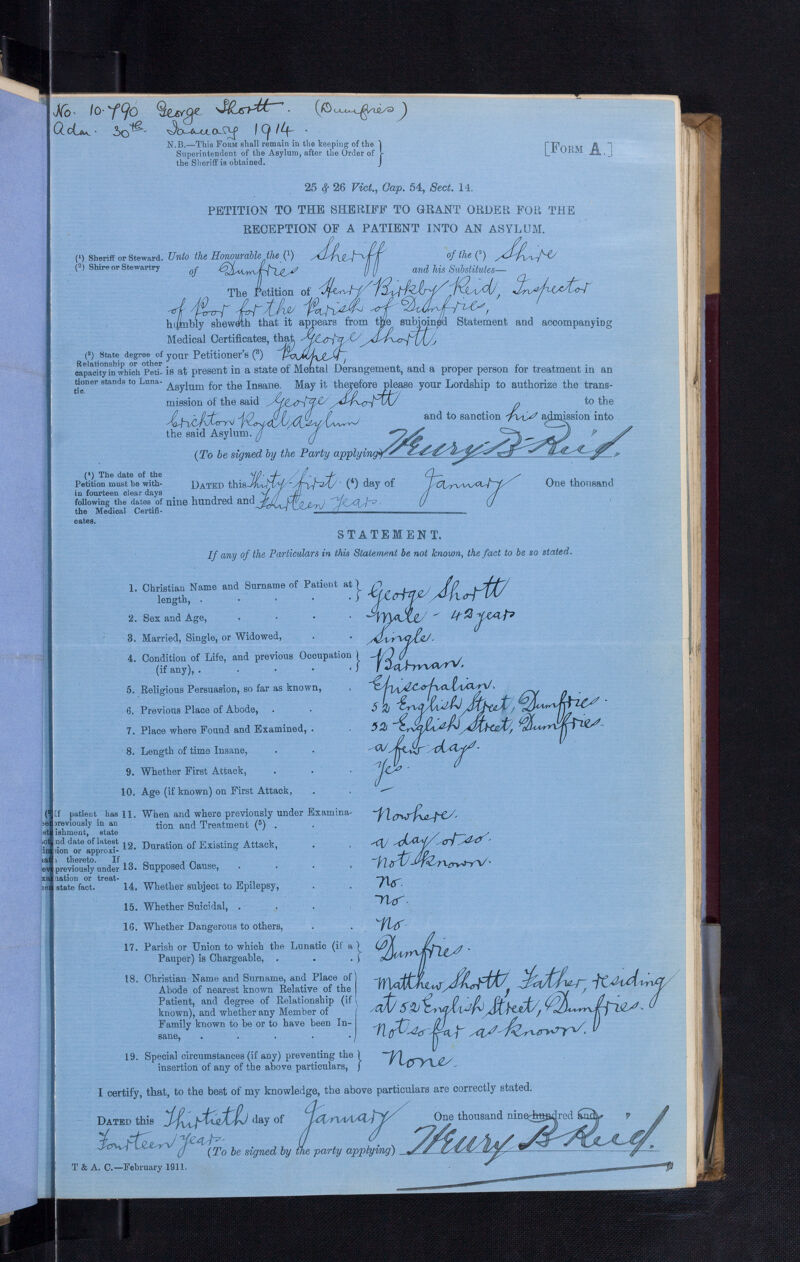 No. 10.790 George Shortt. (Dumfries)
Adm. 30th January 1914.
N.B.—This Form shall remain in the keeping of the
Superintendent of the Asylum, after the Order of
the Sheriff is obtained.
[Form A.]
25 & 26 Vict., Cap. 54, Sect. 14.
PETITION TO THE SHERIFF TO GRANT ORDER FOR THE
RECEPTION OF A PATIENT INTO AN ASYLUM.
(¹) Sheriff or Steward.
(²) Shire or Stewartry
Unto the Honourable the (¹) Sheriff of the (²) Shire
of Dumfries and his Substitutes—
The Petition of Henry Birkby Reid, Inspector
of Poor for the Parish of Dumfries,
humbly sheweth that it appears from the subjoined Statement and accompanying
Medical Certificates, that George Shortt,
(³) State degree of
Relationship or other
capacity in which Peti-
tioner stands to Luna-
tic.
your Petitioner's (³) Pauper,
is at present in a state of Mental Derangement, and a proper person for treatment in an
Asylum for the Insane. May it therefore please your Lordship to authorize the trans-
mission of the said George Shortt to the
Crichton Royal Asylum and to sanction his admission into
the said Asylum.
(To be signed by the Party applying) Henry B. Reid.
(⁴) The date of the
Petition must be with-
in fourteen clear days
following the dates of
the Medical Certifi-
cates.
Dated this Thirty-first (⁴) day of January One thousand
nine hundred and Fourteen years.
STATEMENT.
If any of the Particulars in this Statement be not known, the fact to be so stated.
1. Christian Name and Surname of Patient at
length, . George Shortt
2. Sex and Age, Male - 42 years
3. Married, Single, or Widowed, Single.
4. Condition of Life, and previous Occupation
(if any), . Barman.
5. Religious Persuasion, so far as known, Episcopalian.
6. Previous Place of Abode, . 52 English Street, Dumfries.
7. Place where Found and Examined, . 52 English Street, Dumfries.
8. Length of time Insane, a few days.
9. Whether First Attack, Yes.
10. Age (if known) on First Attack, —
If patient has
previously in an
ishment, state
nd date of latest
sion or approxi-
thereto. If
previously under
ination or treat-
state fact.
11. When and where previously under Examina-
tion and Treatment (⁵) . Nowhere.
12. Duration of Existing Attack, a day or so.
13. Supposed Cause, Not known.
14. Whether subject to Epilepsy, No.
15. Whether Suicidal, . No.
16. Whether Dangerous to others, No
17. Parish or Union to which the Lunatic (if a
Pauper) is Chargeable, . Dumfries.
18. Christian Name and Surname, and Place of
Abode of nearest known Relative of the
Patient, and degree of Relationship (if
known), and whether any Member of
Family known to be or to have been In-
sane,
Matthew Shortt, Father, residing
at 52 English Street, Dumfries.
Not so far as known.
19. Special circumstances (if any) preventing the
insertion of any of the above particulars, None.
I certify, that, to the best of my knowledge, the above particulars are correctly stated.
Dated this Thirtieth day of January One thousand nine hundred and
Fourteen years. (To be signed by the party applying) Henry B Reid.
T & A. C.—February 1911.